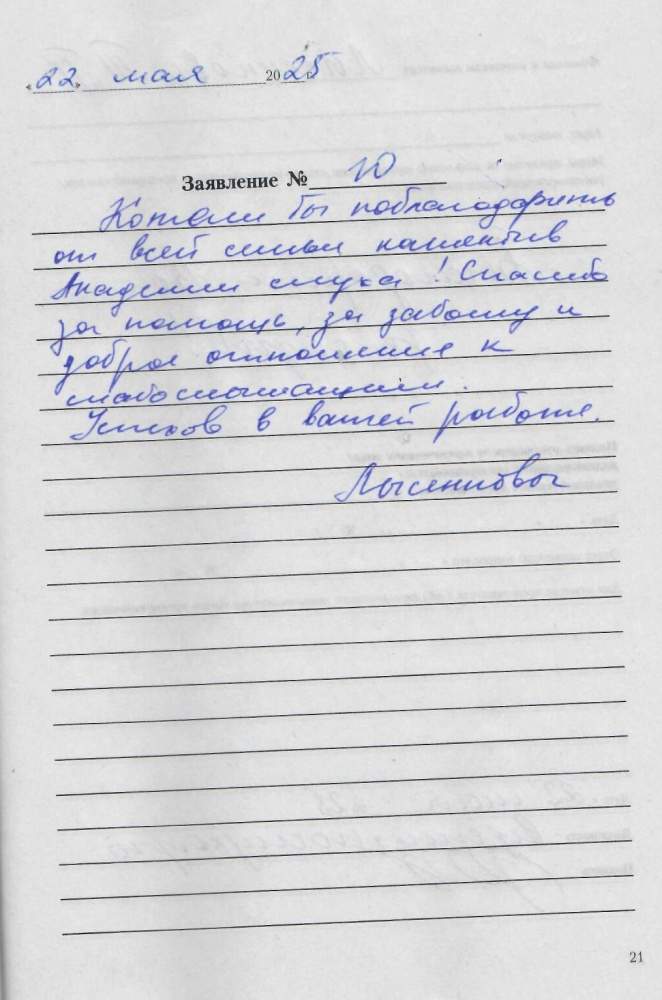 «22» мая 2025 г.
Заявление № 10
Хотели бы поблагодарить
от всей семьи коллектив
Академии слуха! Спасибо
за помощь, за заботу и
доброе отношение к
слабослышащим.
Успехов в вашей работе.
Лысенковы
21